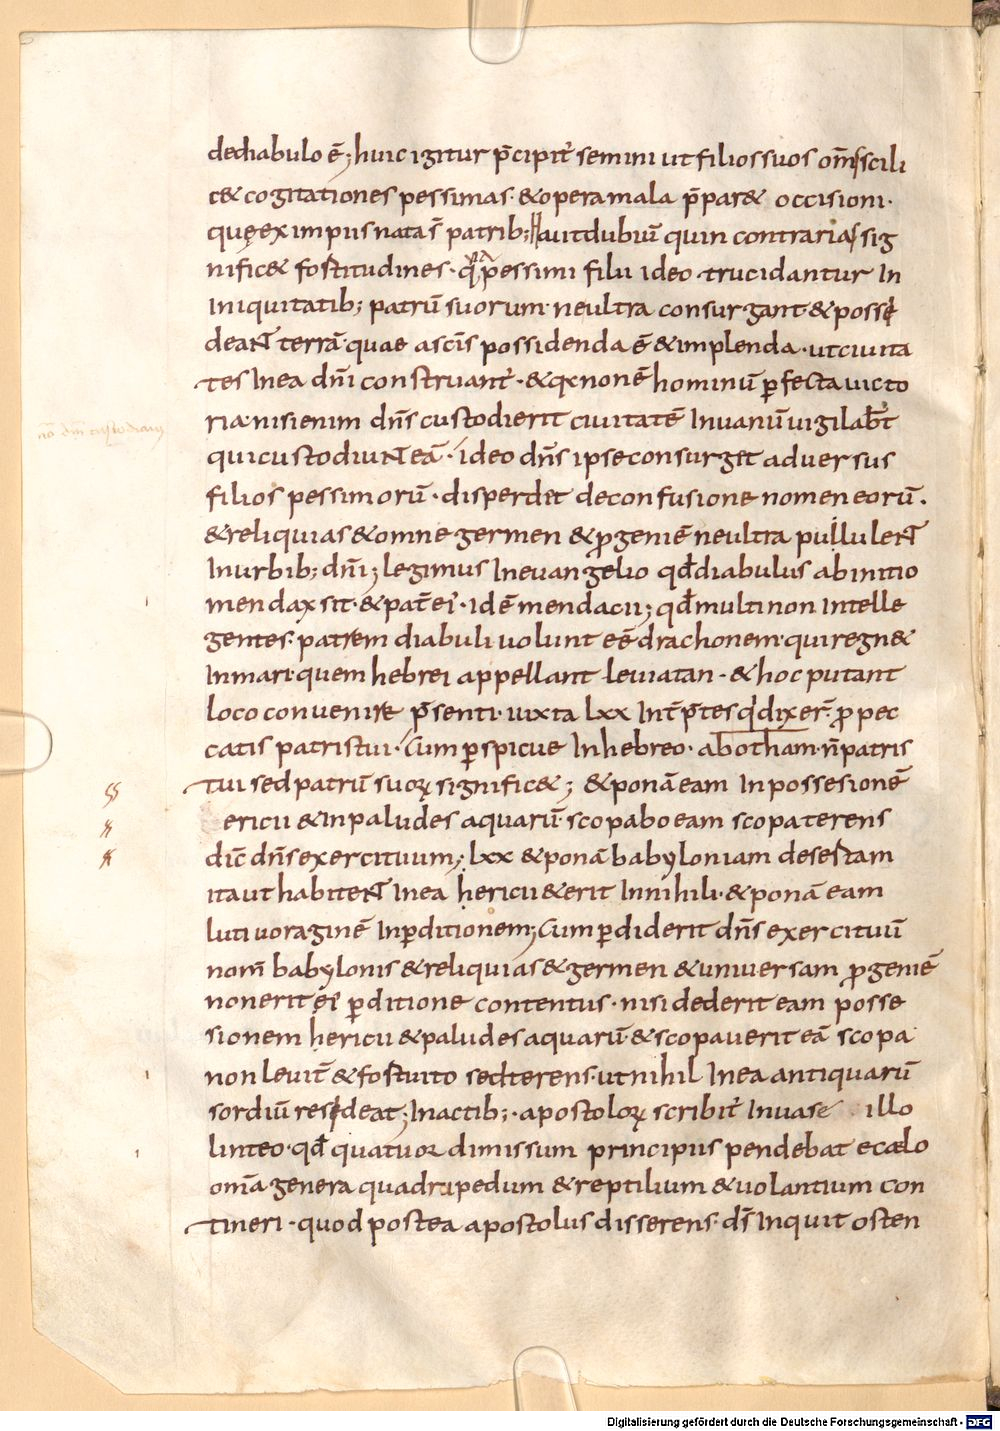 dediabulo ē; huic igitur p̄cipit᷑ semini ut filios suos om̄s scili
c& cogitationes pessimas · & opera mala p̄par& occisioni ·
quę ex impiis nata s̄ patrib; Haut dubiū quin contrarias sig
nific& fostitudines · quia pessimi filii ideo trucidantur In
Iniquitatib; patrū suorum · ne ultra consurgant · & possi
deant terrā · quae a sc̄is possidenda ē & implenda · ut ciuita
tes In ea dn̄i construant᷑ · & q non ē hominū ꝑfecta uicto
ria · nisi enim dn̄s custodierit ciuitatē In uanū uigilab̄t
qui custodiunt eā · ideo dn̄s ipse consurget aduersus
filios pessimorū · disperdet de confusione nomen eorū ·
& reliquias & omne germen & ꝓgeniē ne ultra pullulent
In urbib; dn̄i; legimus In euangelio qd̄ diabulus ab initio
mendax sit · & pat̄ ei᷑ · Idē mendacii; qd̄ multi non Intelle
gentes · patrem diabuli uolunt eē drachonem · qui regn&
In mari · quem hebrei appellant leuiatan · & hoc putant
loco conuenire p̄senti · iuxta lxx Int̄p̄tes qd̄ dixer̄ · ꝓ pec
catis patris tui · Cum ꝑspicue In hebreo · abotham · n̄ patris
tui sed patrū suoꝝ signific&; & ponā eam In possesionē
ericii & In paludes aquarū · scopabo eam scopa terens
dic̄ dn̄s exercituum; lxx & ponā babyloniam desertam
ita ut habitent In ea hericii & erit In nihili · & ponā eam
luti uoraginē In ꝑditionem; Cum ꝑdiderit dn̄s exercituū
nom̄ babylonis & reliquias & germen & uniuersam ꝓgeniē
non erit ei᷑ ꝑditione contentus · nisi dederit eam posse
sionem hericii & paludes aquarū · & scopauerit eā scopa
non leuit̄ & fostuito sed terens · ut nihil In ea antiquarū
sordiū resideat; In actib; · apostoloꝝ scribit᷑ In uase illo
linteo · qd̄ quatuor dimissum principiis pendebat e caelo
om̄a genera quadripedum & reptilium & uolantium con
tineri · quod postea apostolus disserens · ds̄ Inquit osten
Digitalisierung gefördert durch die Deutsche Forschungsgemeinschaft - DFG